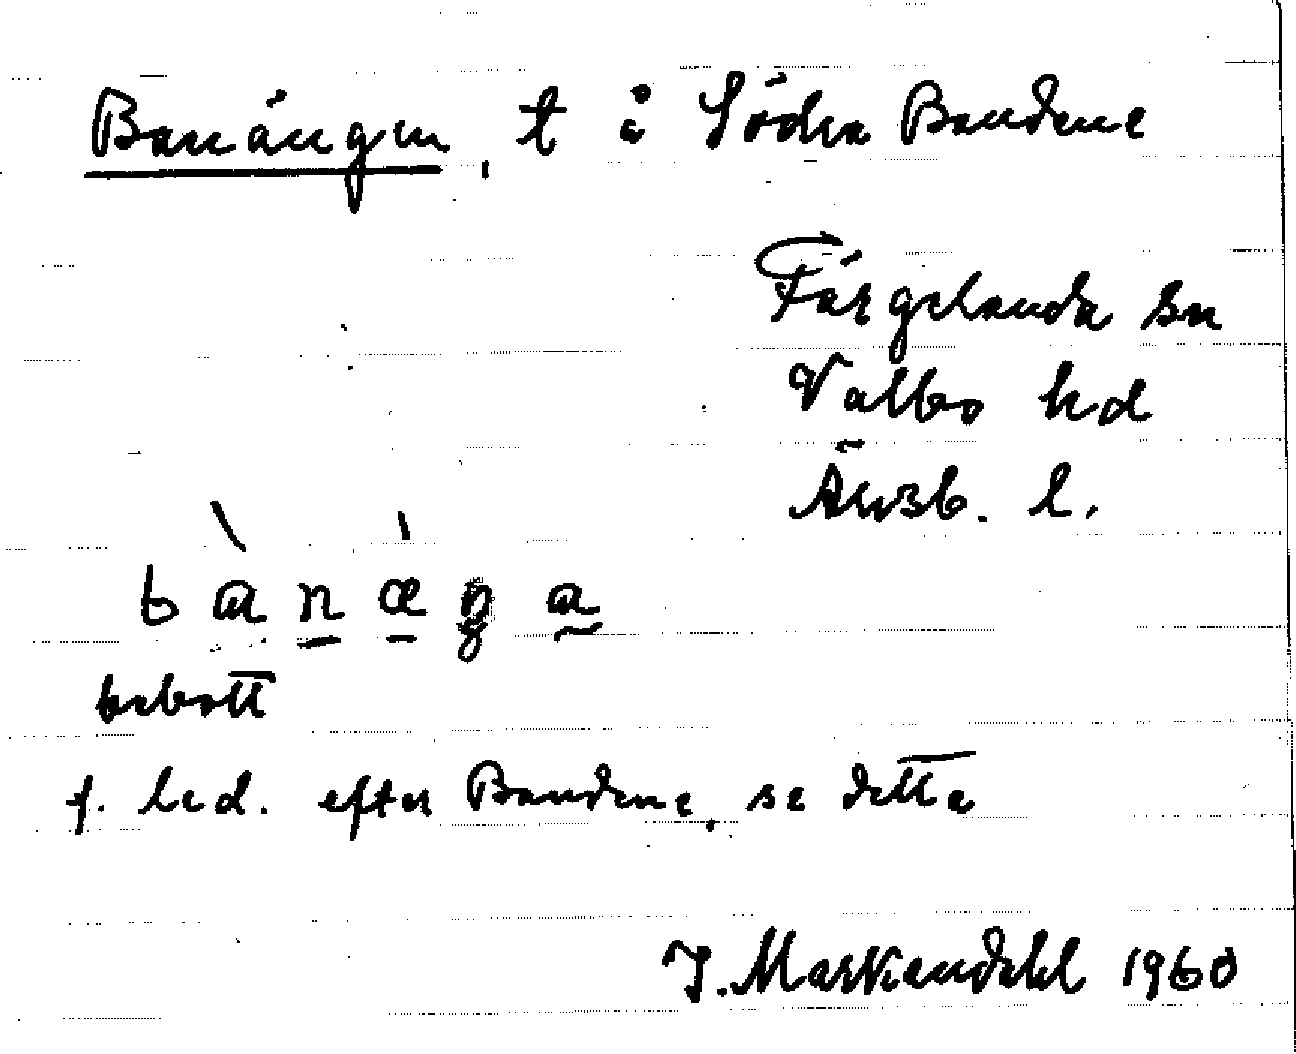 Banängen, t å Södra Bandene
Färgelanda sn
Valbo hd
Älvsb. l.
bànæŋa
bebott
f. led. efter Bandene, se detta
J. Markendahl 1960